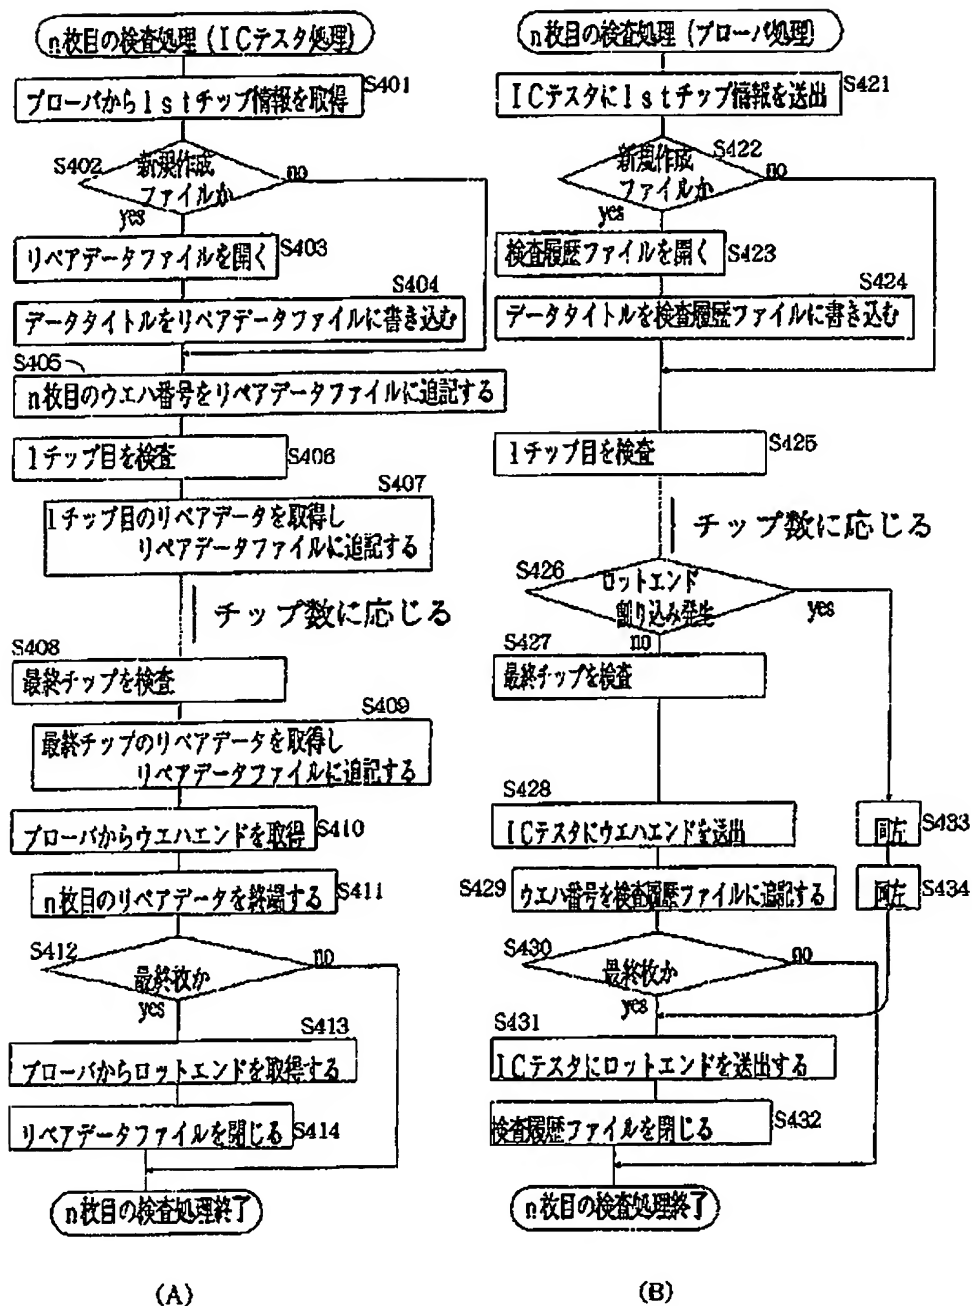 n枚目の検査処理 (ICテスタ処理)
S401
プローバから1stチップ情報を取得
S402
新規作成
ファイルか
no
yes
リペアデータファイルを開く
S403
S404
データタイトルをリペアデータファイルに書き込む
S405
n枚目のウエハ番号をリペアデータファイルに追記する
1チップ目を検査
S406
S407
1チップ目のリペアデータを取得し
リペアデータファイルに追記する
チップ数に応じる
S408
最終チップを検査
S409
最終チップのリペアデータを取得し
リペアデータファイルに追記する
プローバからウエハエンドを取得
S410
n枚目のリペアデータを終端する
S411
S412
最終枚か
no
yes
S413
プローバからロットエンドを取得する
リペアデータファイルを閉じる
S414
n枚目の検査処理終了
(A)
n枚目の検査処理 (プローバ処理)
ICテスタに1stチップ情報を送出
S421
S422
新規作成
ファイルか
no
yes
検査履歴ファイルを開く
S423
S424
データタイトルを検査履歴ファイルに書き込む
1チップ目を検査
S425
チップ数に応じる
S426
ロットエンド
割り込み発生
yes
S427
no
最終チップを検査
S428
ICテスタにウエハエンドを送出
同左
S433
S429
ウエハ番号を検査履歴ファイルに追記する
同左
S434
S430
最終枚か
no
yes
S431
ICテスタにロットエンドを送出する
検査履歴ファイルを閉じる
S432
n枚目の検査処理終了
(B)